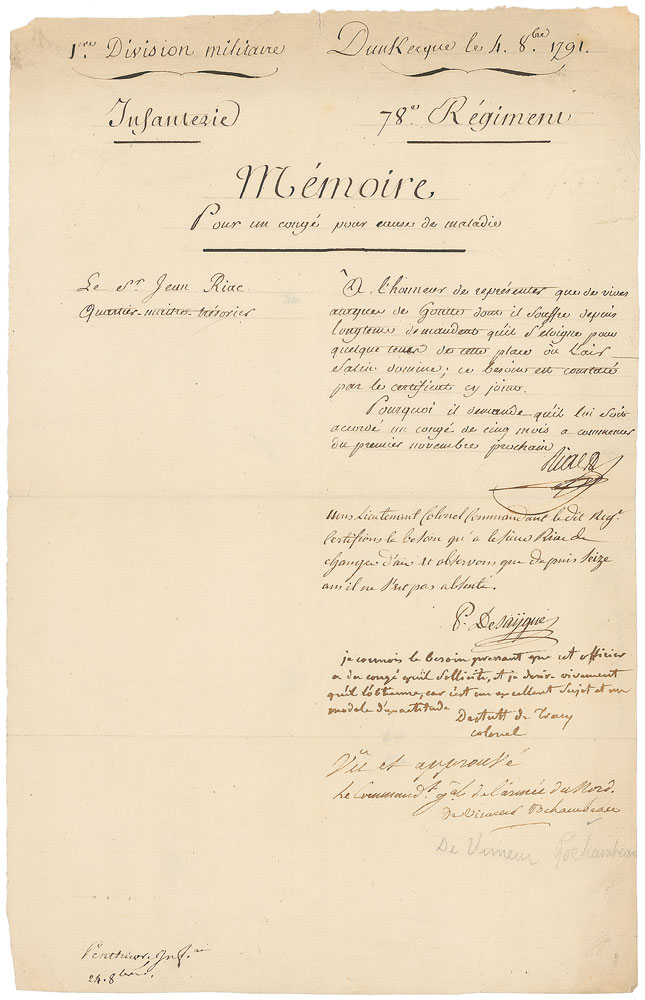 1.re Division militaire
Dunkerque le 4. 8.bre 1791.
Infanterie
78e Régiment
Mémoire
Pour un congé pour cause de maladie
Le Sr. Jean Riac
Quartier-maitre-trésorier
A l'honneur de représenter que de vives
attaques de Goutte dont il souffre depuis
longtems demandent qu'il s'éloigne pour
quelque tems de cette place où l'air
Salin domine; ce besoin est constaté
par le certificat cy joint.
Pourquoi il demande qu'il lui soit
accordé un congé de cinq mois a commencer
du premier novembre prochain
Riac
Nous Lieutenant Colonel Commandant le dit Regt.
Certifions le besoin qu'a le sieur Riac de
changer d'air et observons que depuis seize
ans il ne s'est pas absenté.
P. Desaygue
je connois le besoin pressant que cet officier
a du congé qu'il sollicite, et je desire vivement
qu'il l'obtienne, car c'est un excellent sujet et un
modele d'exactitude
Destutt de Tracy
colonel
Vu et approuvé
Le Commandt. gal. de l'armée du Nord.
De Vimeur Rchambeau
De Vimeur Rochambeau
24. 8bre